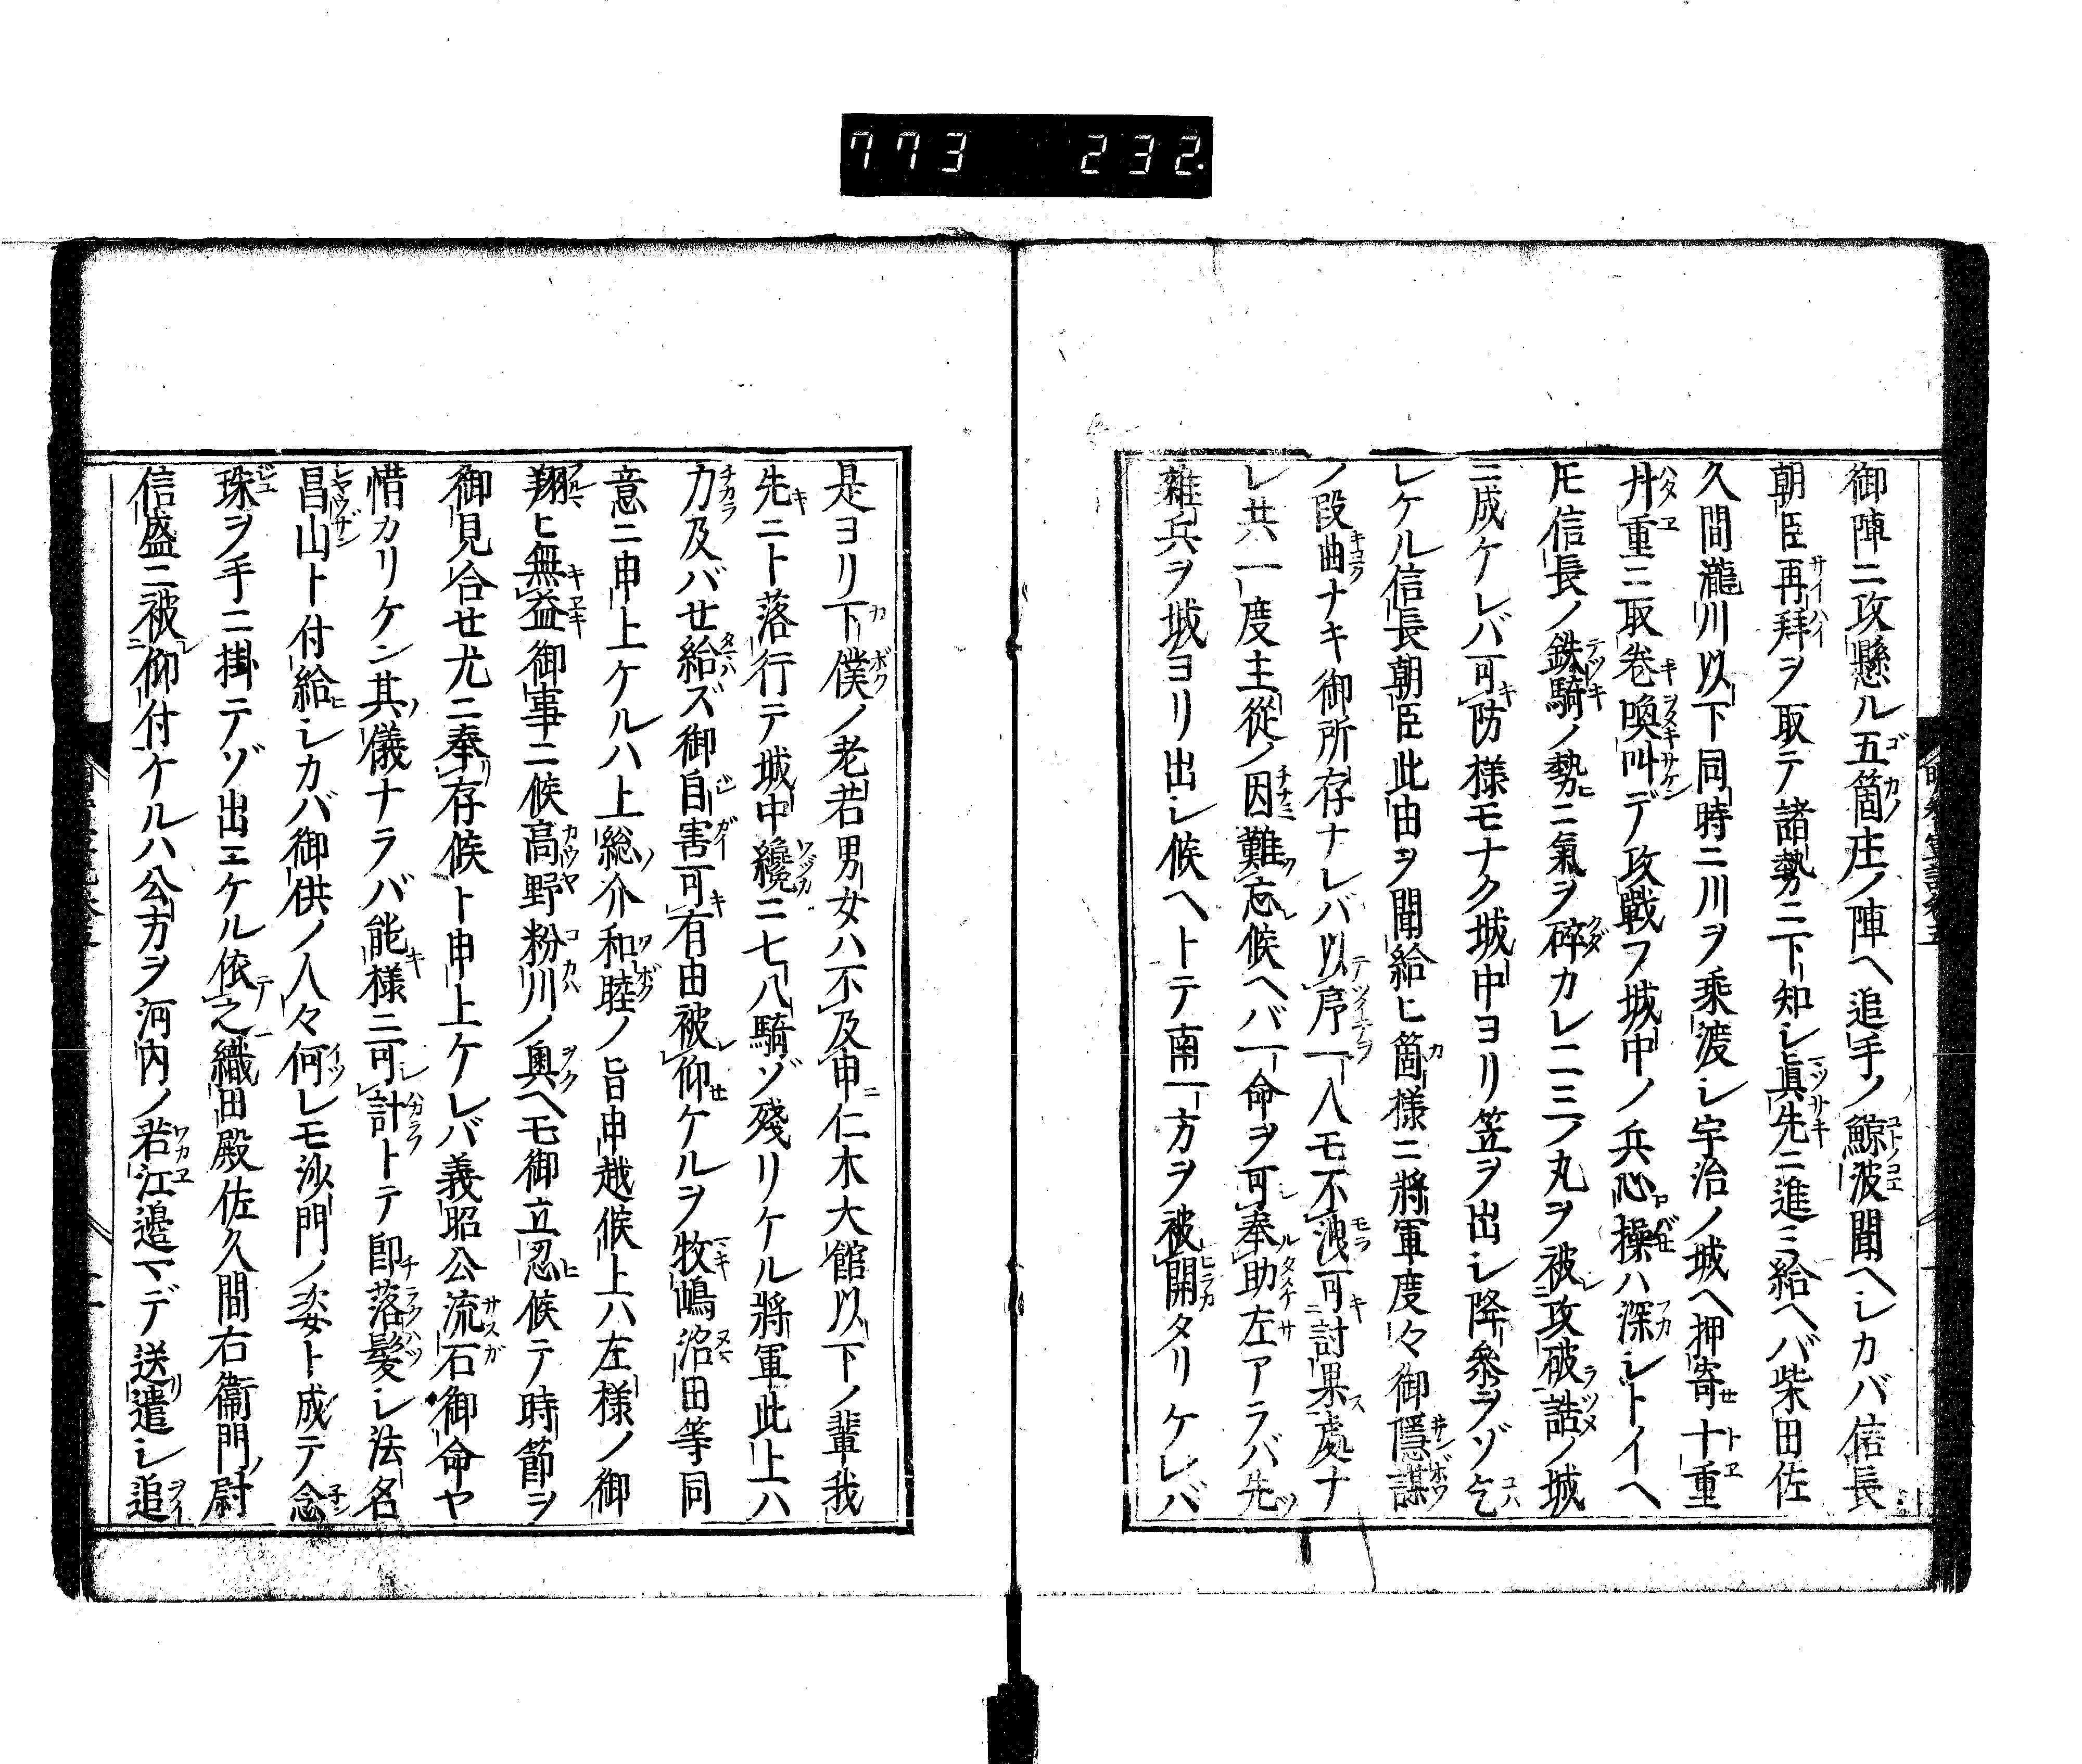 773 232.
御陣ニ攻懸ル五箇庄ノ陣ヘ追手ノ鯨波聞ヘシカバ信長
朝臣再拜ヲ取テ諸勢ニ下知シ眞先ニ進ミ給ヘバ柴田佐
久間瀧川以下同時ニ川ヲ乘渡シ宇治ノ城ヘ押寄十重
廿重ニ取巻喚叫デ攻戰フ城中ノ兵心操ハ深シトイヘ
𪜈信長ノ鉄騎ノ勢ニ氣ヲ碎カレ二三ノ丸ヲ被攻破詰ノ城
ニ成ケレバ可防樣モナク城中ヨリ笠ヲ出シ降參ヲゾ乞
レケル信長朝臣此由ヲ聞給ヒ箇樣ニ將軍度々御隱謀
ノ段曲ナキ御所存ナレバ以序一人モ不洩可討果處ナ
レ共一度主從ノ因難忘候ヘバ一命ヲ可奉助左アラバ先
雜兵ヲ城ヨリ出シ候ヘトテ南一方ヲ被開タリケレバ
是ヨリ下僕ノ老若男女ハ不及申仁木大館以下ノ輩我
先ニト落行テ城中纔ニ七八騎ゾ殘リケル將軍此上ハ
力及バセ給ズ御自害可有由被仰ケルヲ牧嶋沼田等同
意ニ申上ケルハ上総介和睦ノ旨申越候上ハ左樣ノ御
翔ヒ無益御事ニ候高野粉川ノ奧ヘモ御立忍候テ時節ヲ
御見合セ尤ニ奉存候ト申上ケレバ義昭公流石御命ヤ
惜カリケン其儀ナラバ能樣ニ可計トテ即落髮シ法名
昌山ト付給シカバ御供ノ人々何レモ沙門ノ姿ト成テ念
珠ヲ手ニ掛テゾ出ヱケル依之織田殿佐久間右衞門尉
信盛ニ被仰付ケルハ公方ヲ河内ノ若江邉マデ送遣シ追